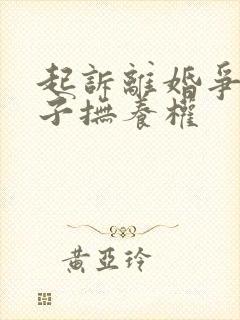 起訴離婚爭
子撫養權
黃亞玲